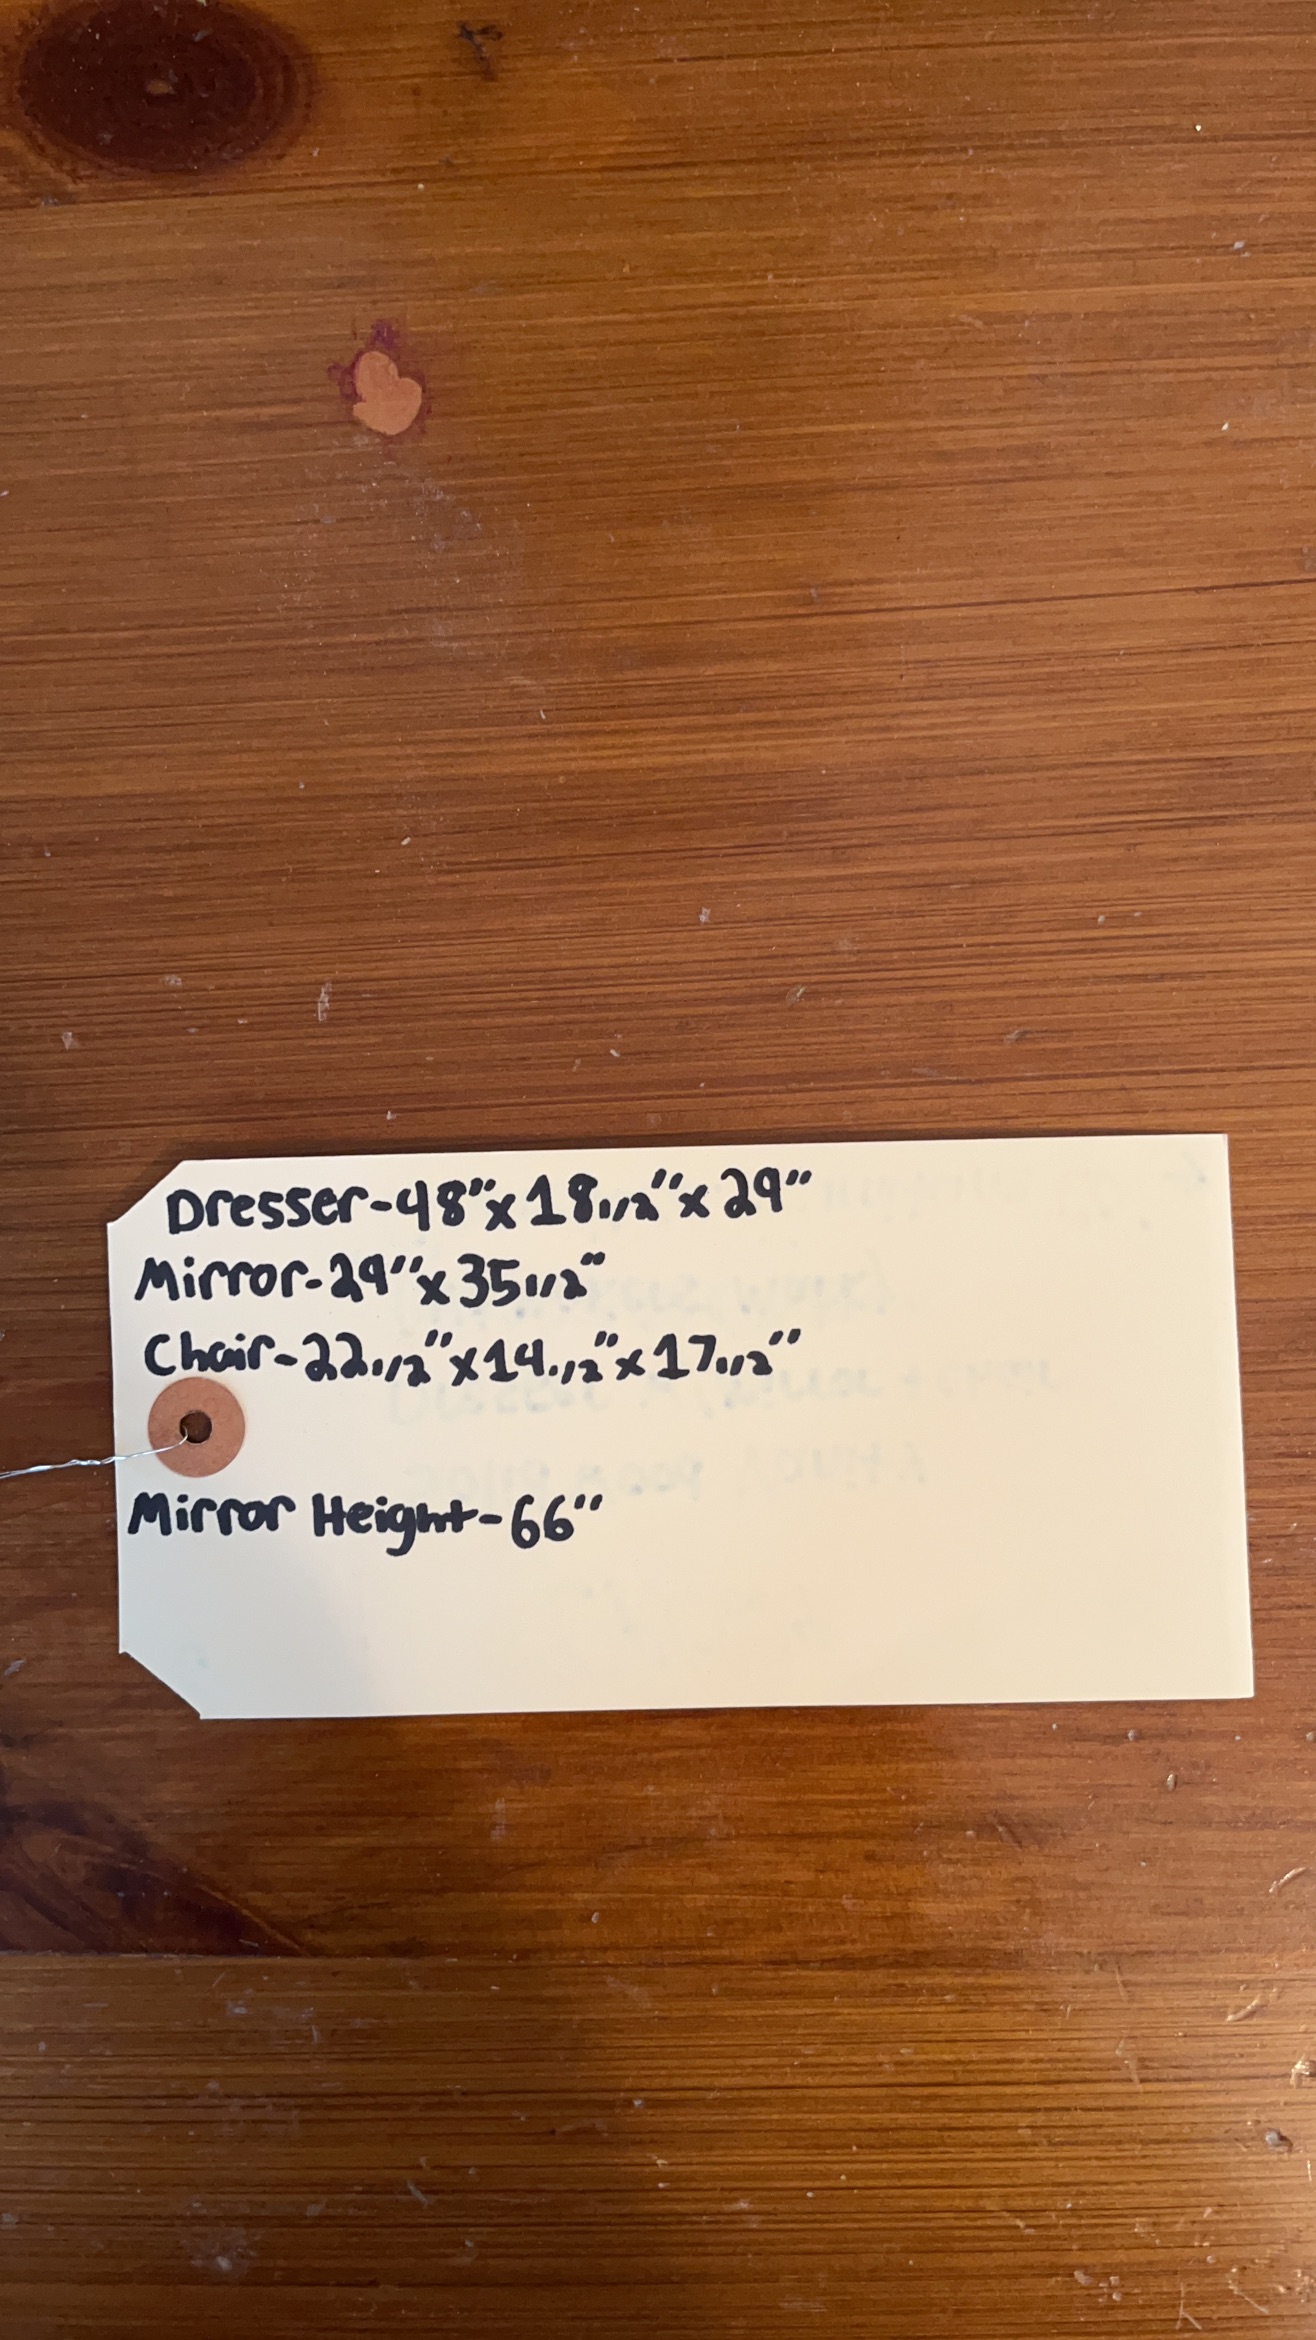 Dresser-48"x 18 1/2"x 29"
Mirror-29"x 35 1/2"
Chair-22 1/2"x14 1/2"x 17 1/2"
Mirror Height-66"